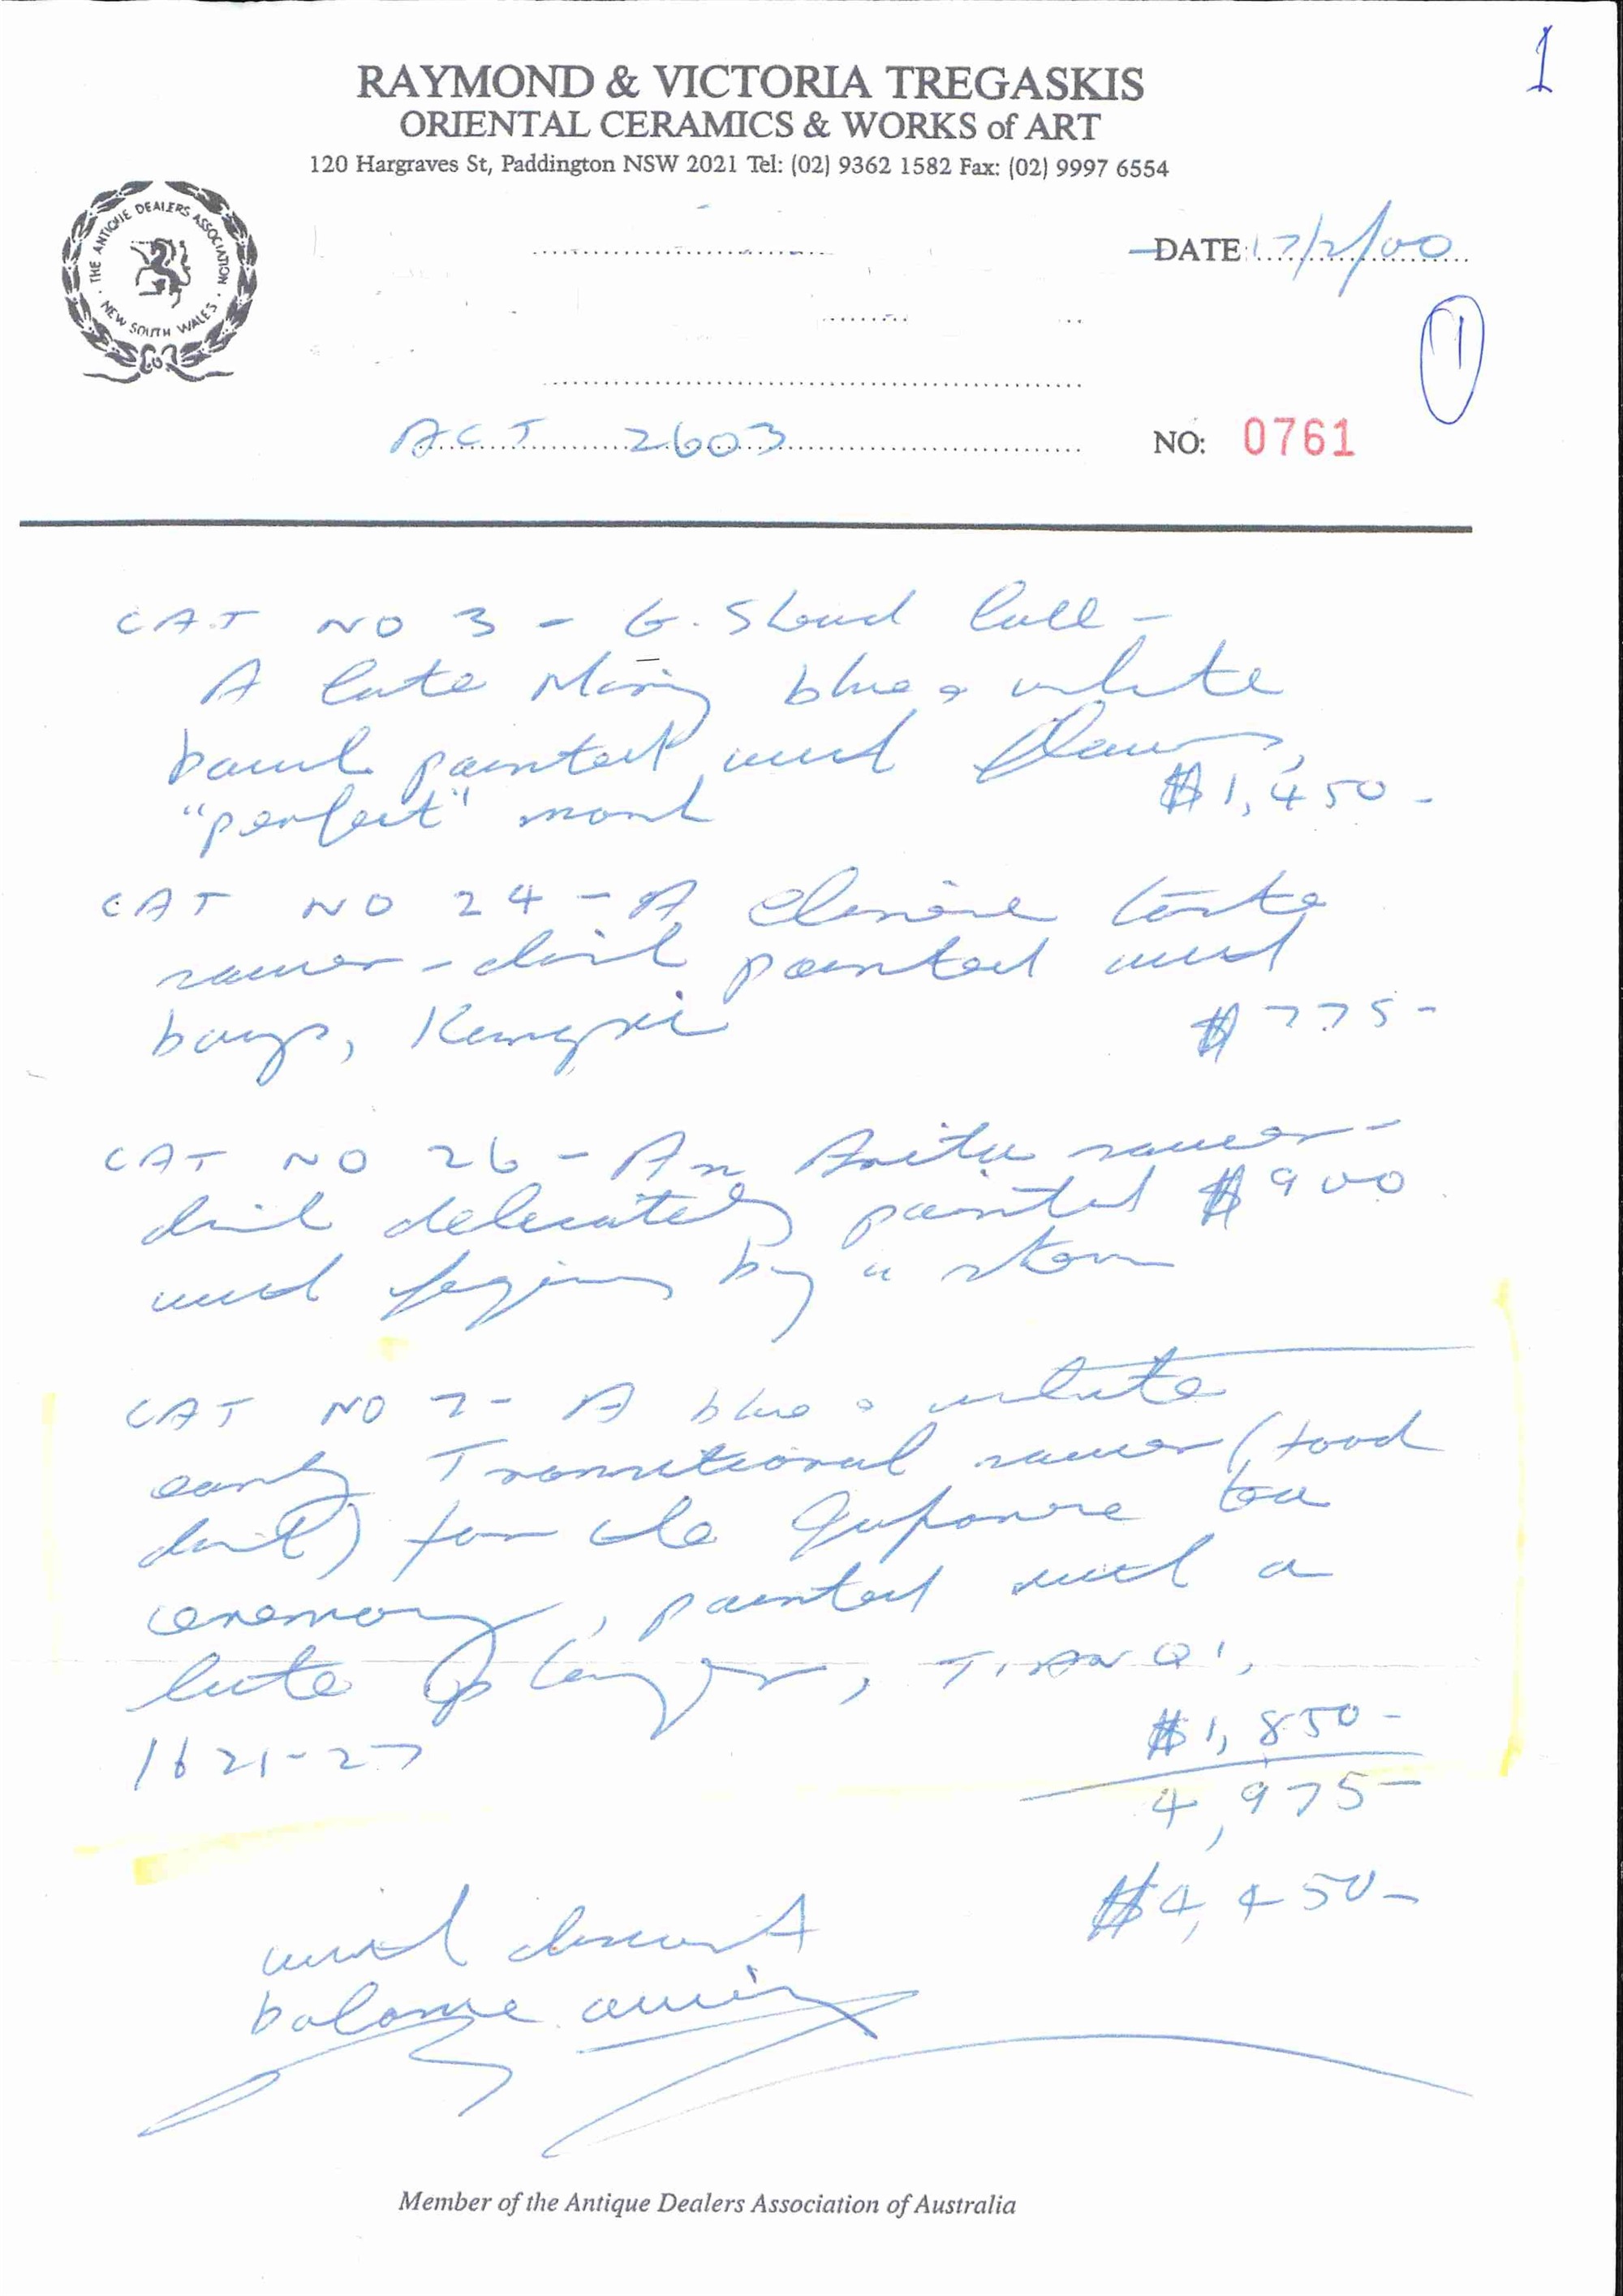 1
RAYMOND & VICTORIA TREGASKIS
ORIENTAL CERAMICS & WORKS of ART
120 Hargraves St, Paddington NSW 2021 Tel: (02) 9362 1582 Fax: (02) 9997 6554
THE ANTIQUE DEALERS ASSOCIATION
NEW SOUTH WALES
DATE: 17/2/00
1
ACT 2603
NO: 0761
CAT NO 3 - G. Stoud Coll -
A late Ming blue & white
bowl painted with flowers,
"perfect" mark $1,450-
CAT NO 24 - A Chinese taste
saucer-dish painted with
boys, Kangxi $775-
CAT NO 26 - An Arita saucer-
dish delicately painted $900
with figures by a
CAT NO 7- A blue & white
early Transitional saucer (food
dish) for the Japanese tea
ceremony, painted with a
lute player, TIANQI,
1621-27 $1,850-
4,975-
with discount $4,450-
balance owing
Member of the Antique Dealers Association of Australia